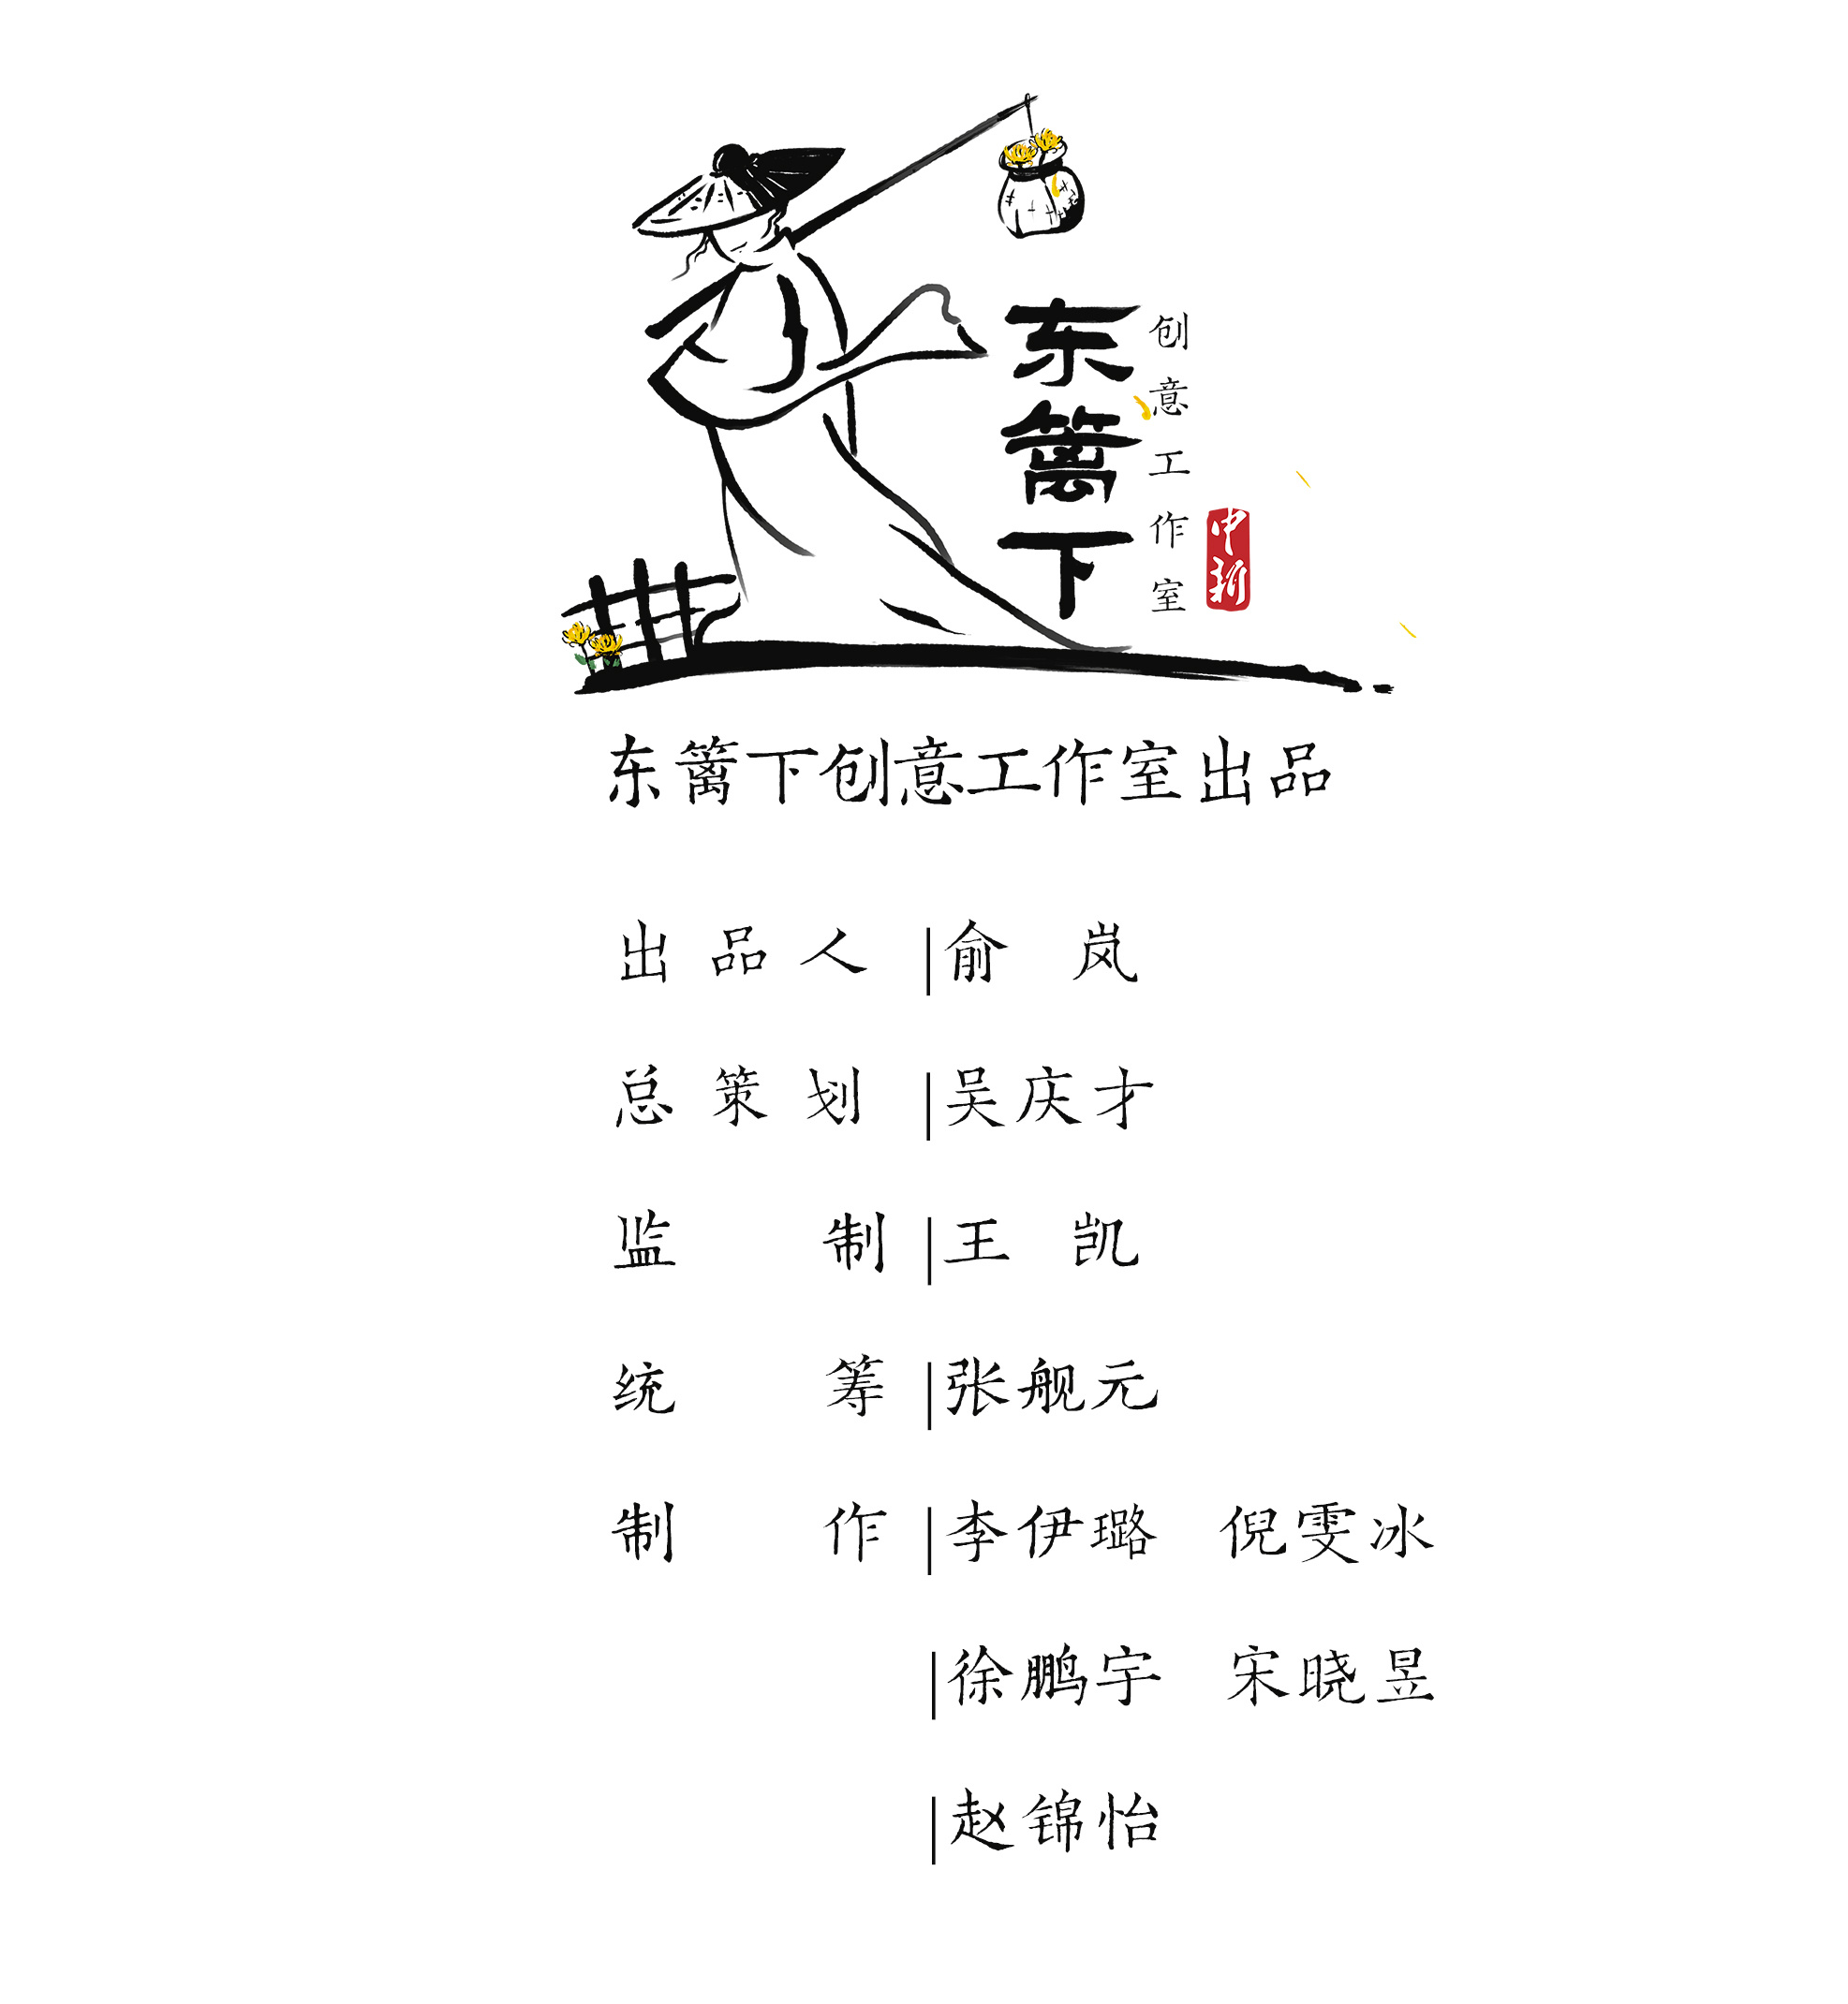 东篱下
创意工作室
中新
东篱下创意工作室出品
出品人|俞岚
总策划|吴庆才
监制|王凯
统筹|张舰元
制作|李伊璐 倪雯冰
|徐鹏宇 宋晓昱
|赵锦怡